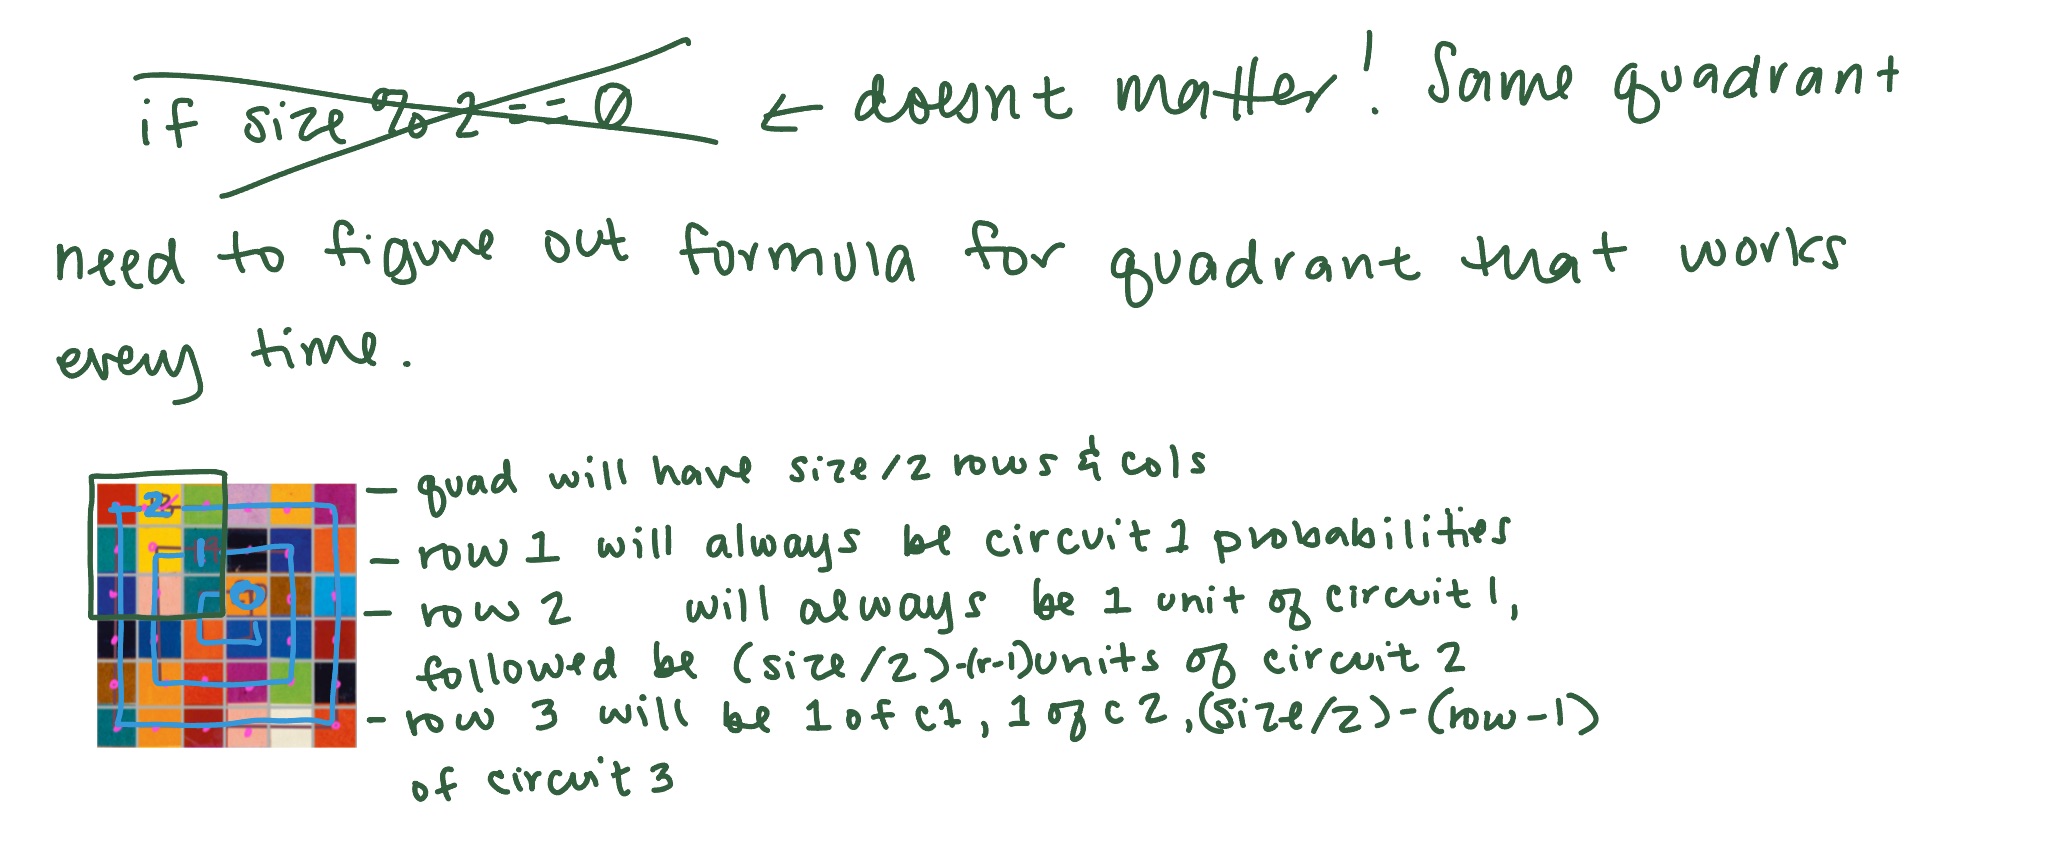 if size % 2 == 0 ← doesnt matter! Same quadrant
need to figure out formula for quadrant that works
every time.
- quad will have size/2 rows & cols
- row 1 will always be circuit 1 probabilities
- row 2 will always be 1 unit of circuit 1,
followed be (size/2)-(r-1)units of circuit 2
- row 3 will be 1 of c1, 1 of c2, (size/2)-(row-1)
of circuit 3
2
1
0